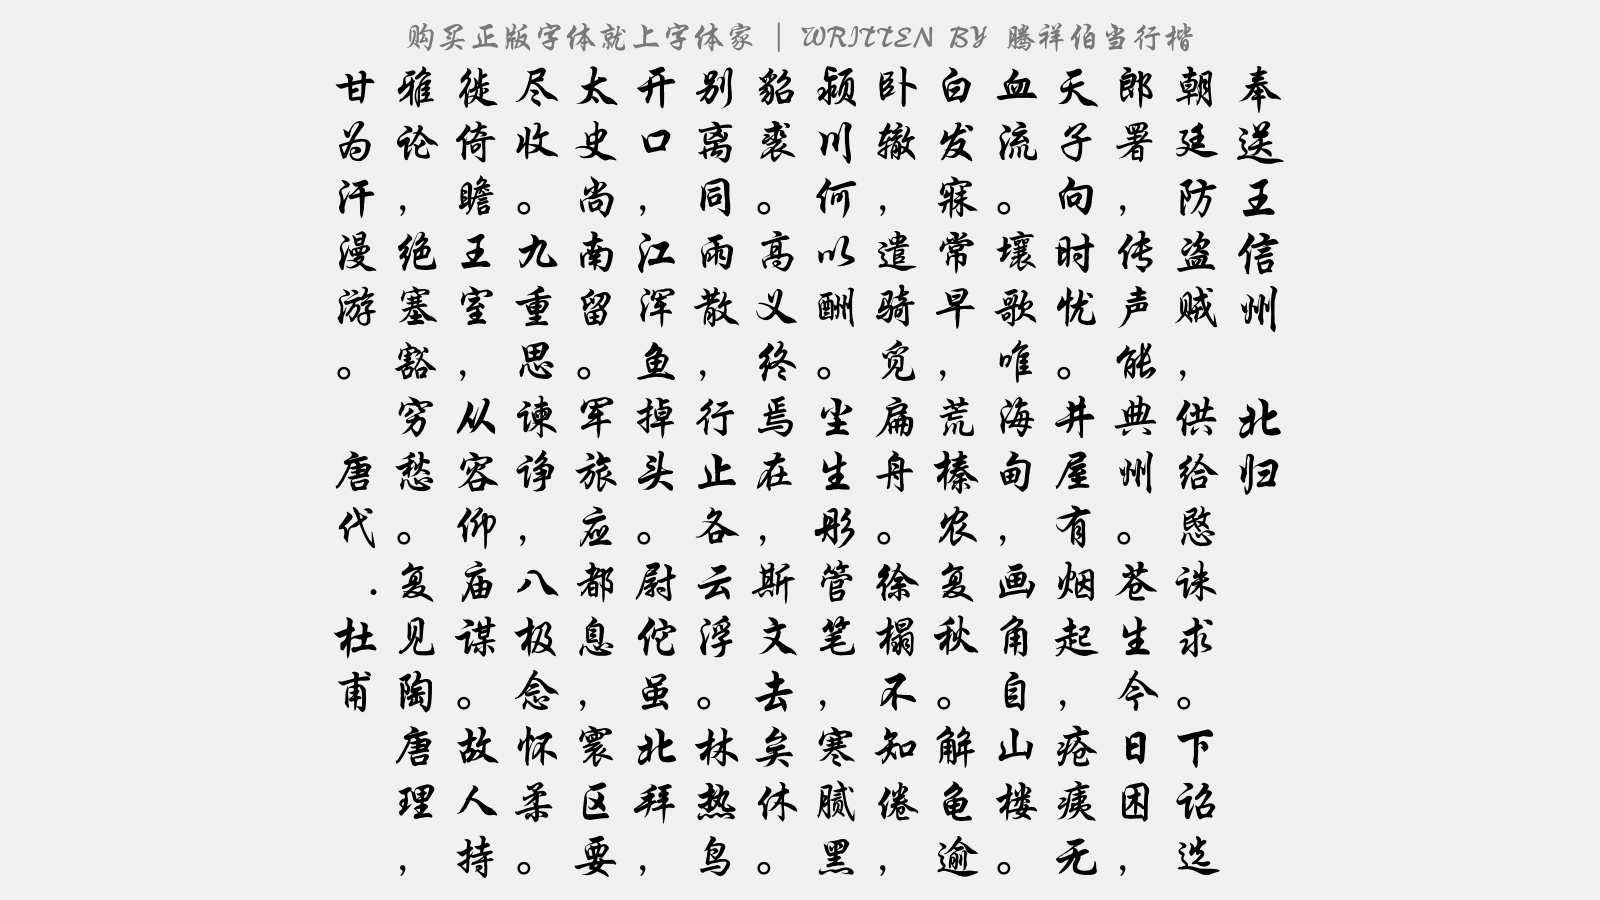 购买正版字体就上字体家 | WRITTEN BY 腾祥伯当行楷
奉送王信州 北归
朝廷防盗贼，供给愍诛求。下诏选
郎署，传声能典州。苍生今日困，
天子向时忧。井屋有烟起，疮痍无
血流。壤歌唯海甸，画角自山楼。
白发寐常早，荒榛农复秋。解龟逾
卧辙，遣骑觅扁舟。徐榻不知倦，
颍川何以酬。尘生彤管笔，寒腻黑
貂裘。高义终焉在，斯文去矣休。
别离同雨散，行止各云浮。林热鸟
开口，江浑鱼掉头。尉佗虽北拜，
太史尚南留。军旅应都息，寰区要
尽收。九重思谏诤，八极念怀柔。
徙倚瞻王室，从容仰庙谋。故人持
雅论，绝塞豁穷愁。复见陶唐理，
甘为汗漫游。 唐代 . 杜甫